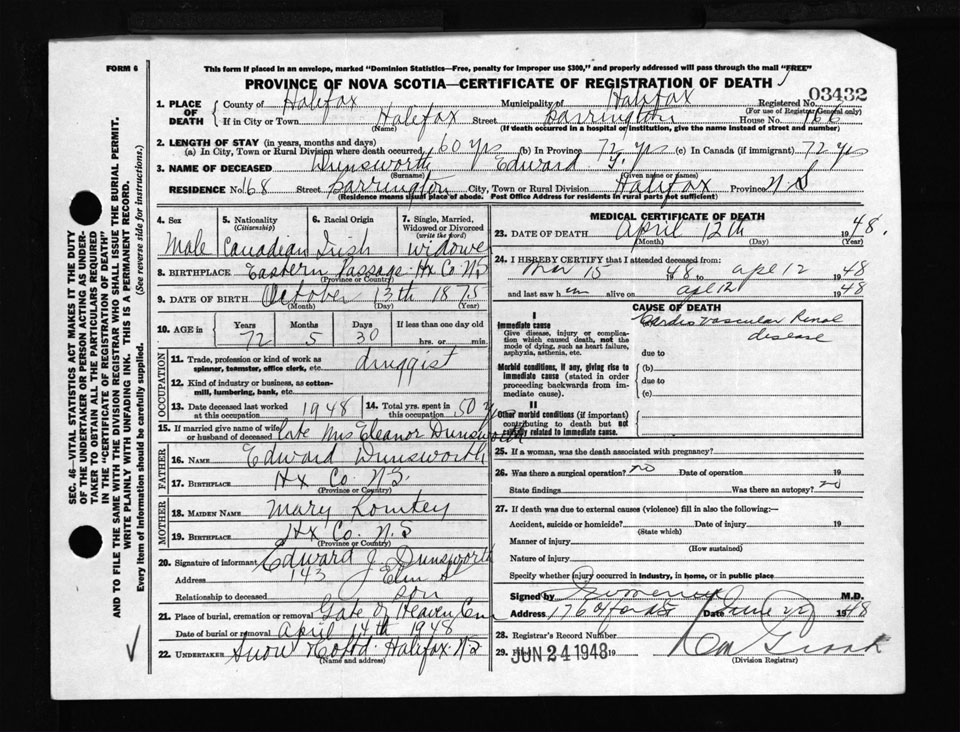 FORM 6
This form if placed in an envelope, marked "Dominion Statistics—Free, penalty for improper use $300," and properly addressed will pass through the mail "FREE"
PROVINCE OF NOVA SCOTIA—CERTIFICATE OF REGISTRATION OF DEATH
SEC. 46—VITAL STATISTICS ACT MAKES IT THE DUTY
OF THE UNDERTAKER OR PERSON ACTING AS UNDER-
TAKER TO OBTAIN ALL THE PARTICULARS REQUIRED
IN THE "CERTIFICATE OF REGISTRATION OF DEATH"
AND TO FILE THE SAME WITH THE DIVISION REGISTRAR WHO SHALL ISSUE THE BURIAL PERMIT.
WRITE PLAINLY WITH UNFADING INK. THIS IS A PERMANENT RECORD.
Every item of Information should be carefully supplied. (See reverse side for instructions.)
1. PLACE OF DEATH
County of Halifax Municipality of Halifax Registered No. 03432
(For use of Registrar General only)
If in City or Town Halifax Street Barrington House No. 166
(Name) (If death occurred in a hospital or institution, give the name instead of street and number)
2. LENGTH OF STAY (in years, months and days)
(a) In City, Town or Rural Division where death occurred 60 yrs (b) In Province 72 yrs (c) In Canada (if immigrant) 72 yrs
3. NAME OF DECEASED Dunsworth Edward
(Surname) (Given name or names)
RESIDENCE No. 168 Street Barrington City, Town or Rural Division Halifax Province N S
(Residence means usual place of abode. Post Office Address for residents in rural parts not sufficient)
4. Sex Male
5. Nationality (Citizenship) Canadian
6. Racial Origin Irish
7. Single, Married, Widowed or Divorced (write the word) widower
8. BIRTHPLACE Eastern Passage Hx Co. N S
9. DATE OF BIRTH October 13th 1875
(Month) (Day) (Year)
10. AGE in Years Months Days If less than one day old
72 5 30 hrs. or min.
OCCUPATION
11. Trade, profession or kind of work as spinner, teamster, office clerk, etc. druggist
12. Kind of industry or business, as cotton-mill, lumbering, bank, etc.
13. Date deceased last worked at this occupation 1948
14. Total yrs. spent in this occupation 50 y
15. If married give name of wife or husband of deceased late Mrs Eleanor Dunsworth
FATHER
16. NAME Edward Dunsworth
17. BIRTHPLACE Hx Co. N S.
(Province or Country)
MOTHER
18. MAIDEN NAME Mary Romkey
19. BIRTHPLACE Hx Co. N. S
(Province or Country)
20. Signature of informant Edward J Dunsworth
Address 143 Elm St
Relationship to deceased son
21. Place of burial, cremation or removal Gate of Heaven Cem
Date of burial or removal April 14th 1948
22. UNDERTAKER Snow Halifax. N S
(Name and address)
MEDICAL CERTIFICATE OF DEATH
23. DATE OF DEATH April 12th 1948.
(Month) (Day) (Year)
24. I HEREBY CERTIFY that I attended deceased from:
Mar 15 1948 to apl 12 1948
and last saw him alive on apl 12 1948
CAUSE OF DEATH
I
Immediate cause
Give disease, injury or complication which caused death, not the mode of dying, such as heart failure, asphyxia, asthenia, etc.
Cardio Vascular Renal disease
due to
Morbid conditions, if any, giving rise to immediate cause (stated in order proceeding backwards from immediate cause).
(b)
due to
(c)
II
Other morbid conditions (if important) contributing to death but not causally related to immediate cause.
25. If a woman, was the death associated with pregnancy?
26. Was there a surgical operation? no Date of operation 19
State findings Was there an autopsy? no
27. If death was due to external causes (violence) fill in also the following:—
Accident, suicide or homicide? Date of injury 19
(State which)
Manner of injury
(How sustained)
Nature of injury
Specify whether injury occurred in industry, in home, or in public place
Signed by M.D.
Address 176 Oxford St Date June 22 1948
28. Registrar's Record Number
29. JUN 24 1948 19
(Division Registrar)